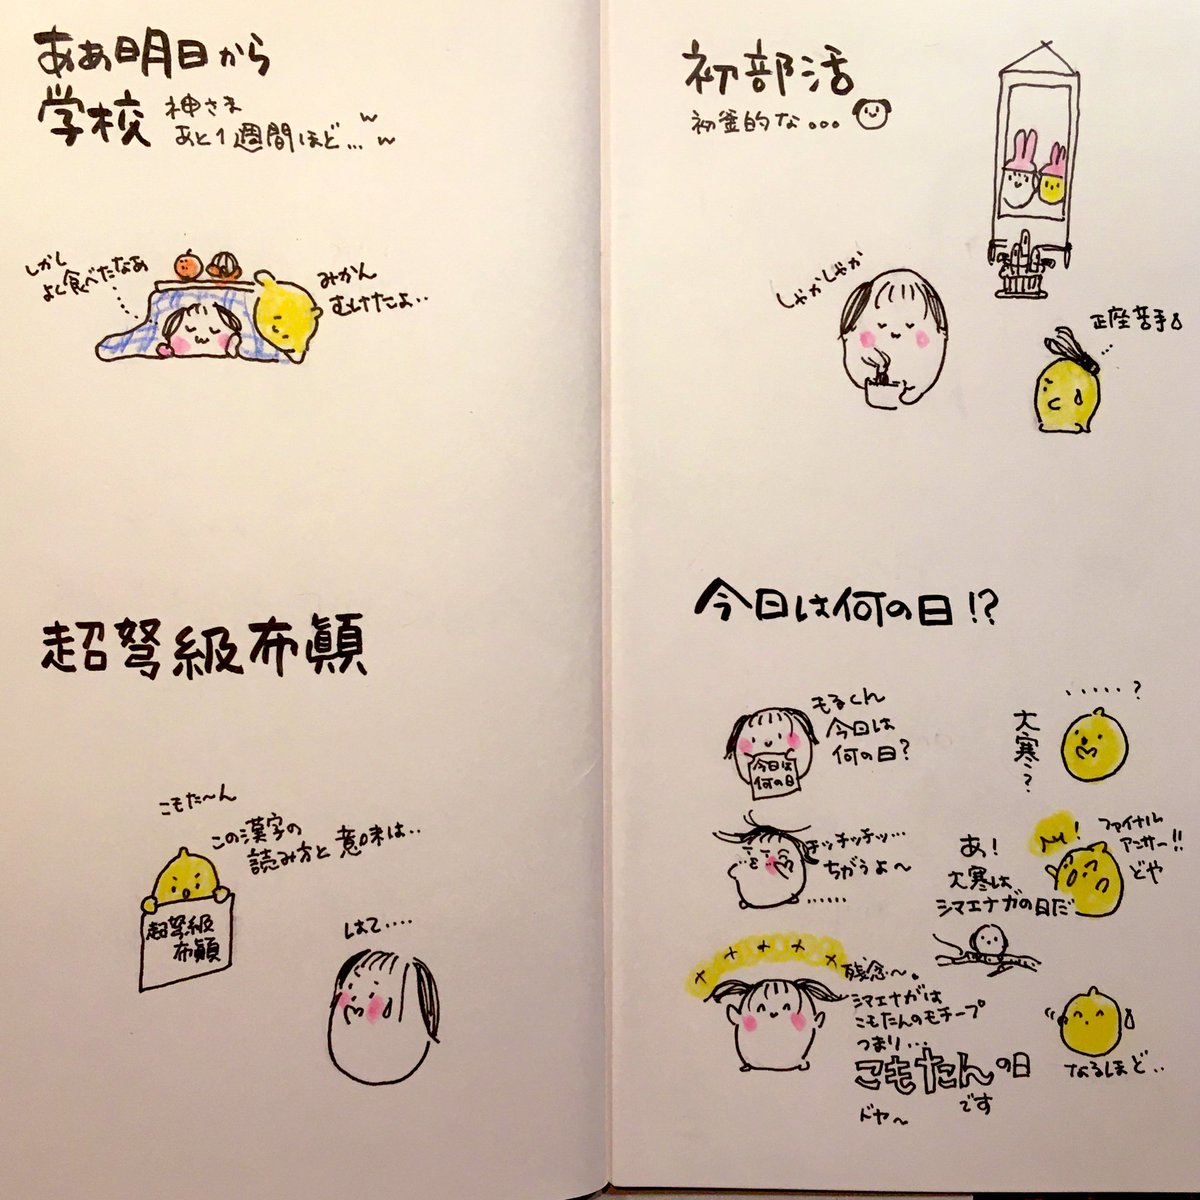 ああ明日から
学校
神さま
あと1週間ほど…
しかし
よく食べたなぁ
みかん
むけたよ‥
超弩級布顚
こもた〜ん
この漢字の
読み方と意味は‥
超弩級
布顚
はて‥‥
初部活
初釜的な。。。
しゃかしゃか
正座苦手
今日は何の日!?
もるくん
今日は
何の日?
今日は
何の日
‥‥‥?
大寒?
チッチッチッ…
ちがうよ〜
‥‥‥
あ!
大寒は
シマエナガの日だ
!
ファイナル
アンサー!!
どや
残念〜。
シマエナガは
こもたんのモチーフ
つまり…
こもたんの日
です
ドヤ〜
なるほど‥